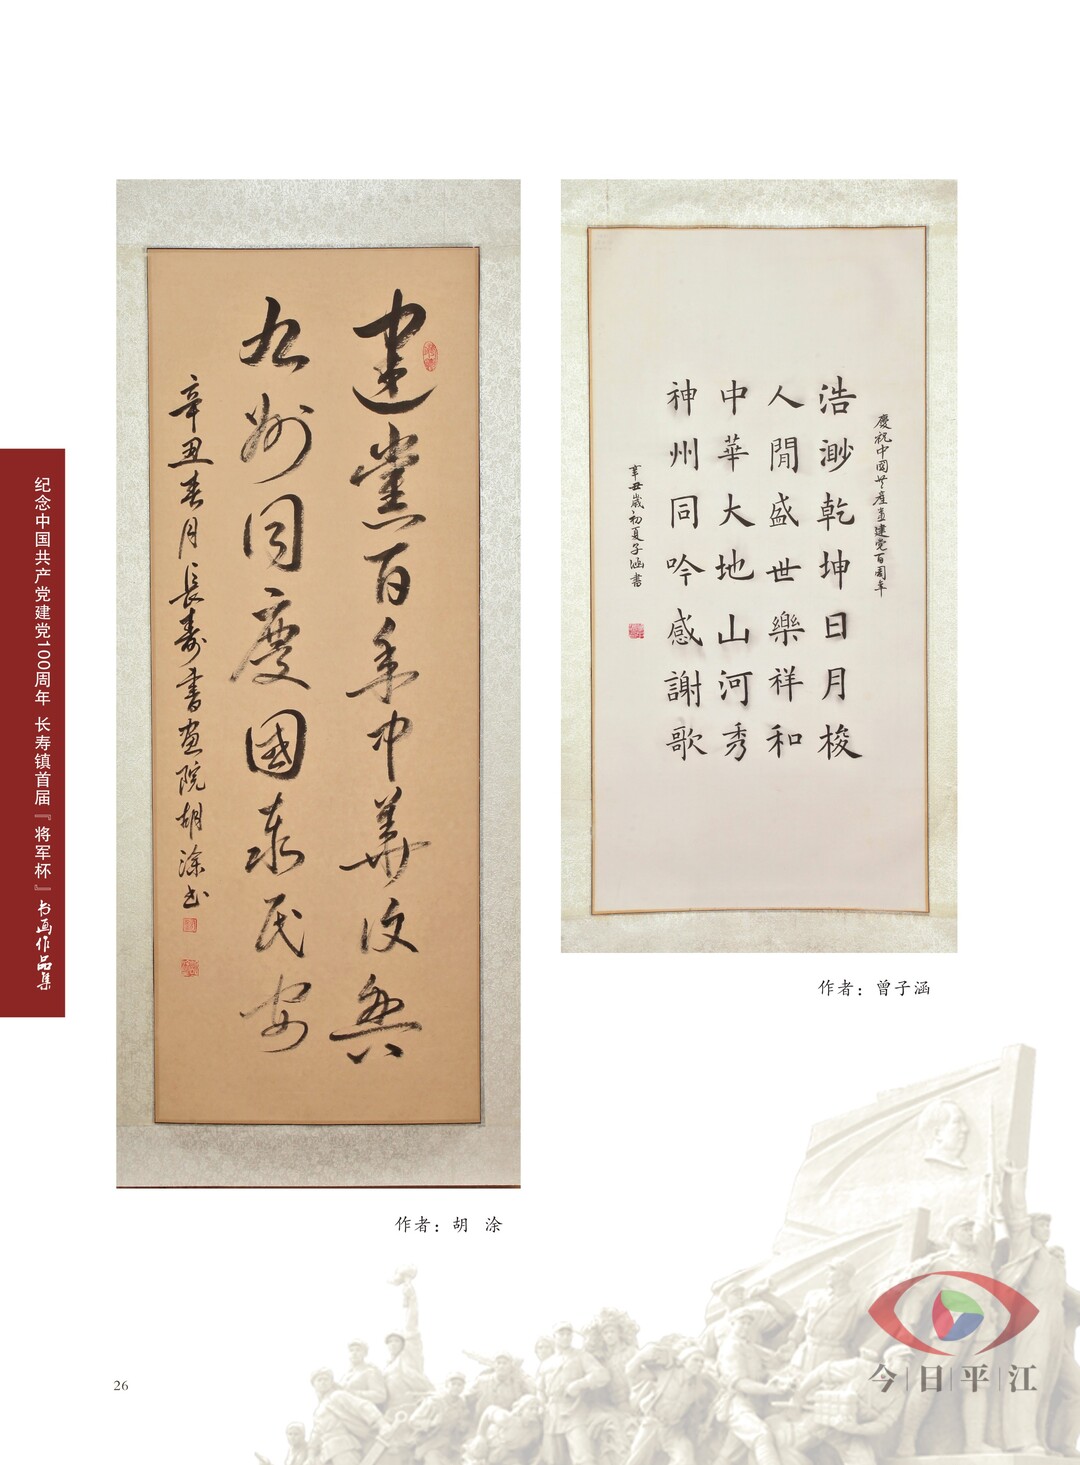 纪念中国共产党建党100周年 长寿镇首届『将军杯』书画作品集
建黨百年中華復興
九州同慶國泰民安
辛丑春月長壽書画院胡涂书
作者：胡 涂
慶祝中國共產黨建党百周年
浩渺乾坤日月梭
人間盛世樂祥和
中華大地山河秀
神州同吟感謝歌
辛丑歲初夏子涵書
作者：曾子涵
26
今日平江